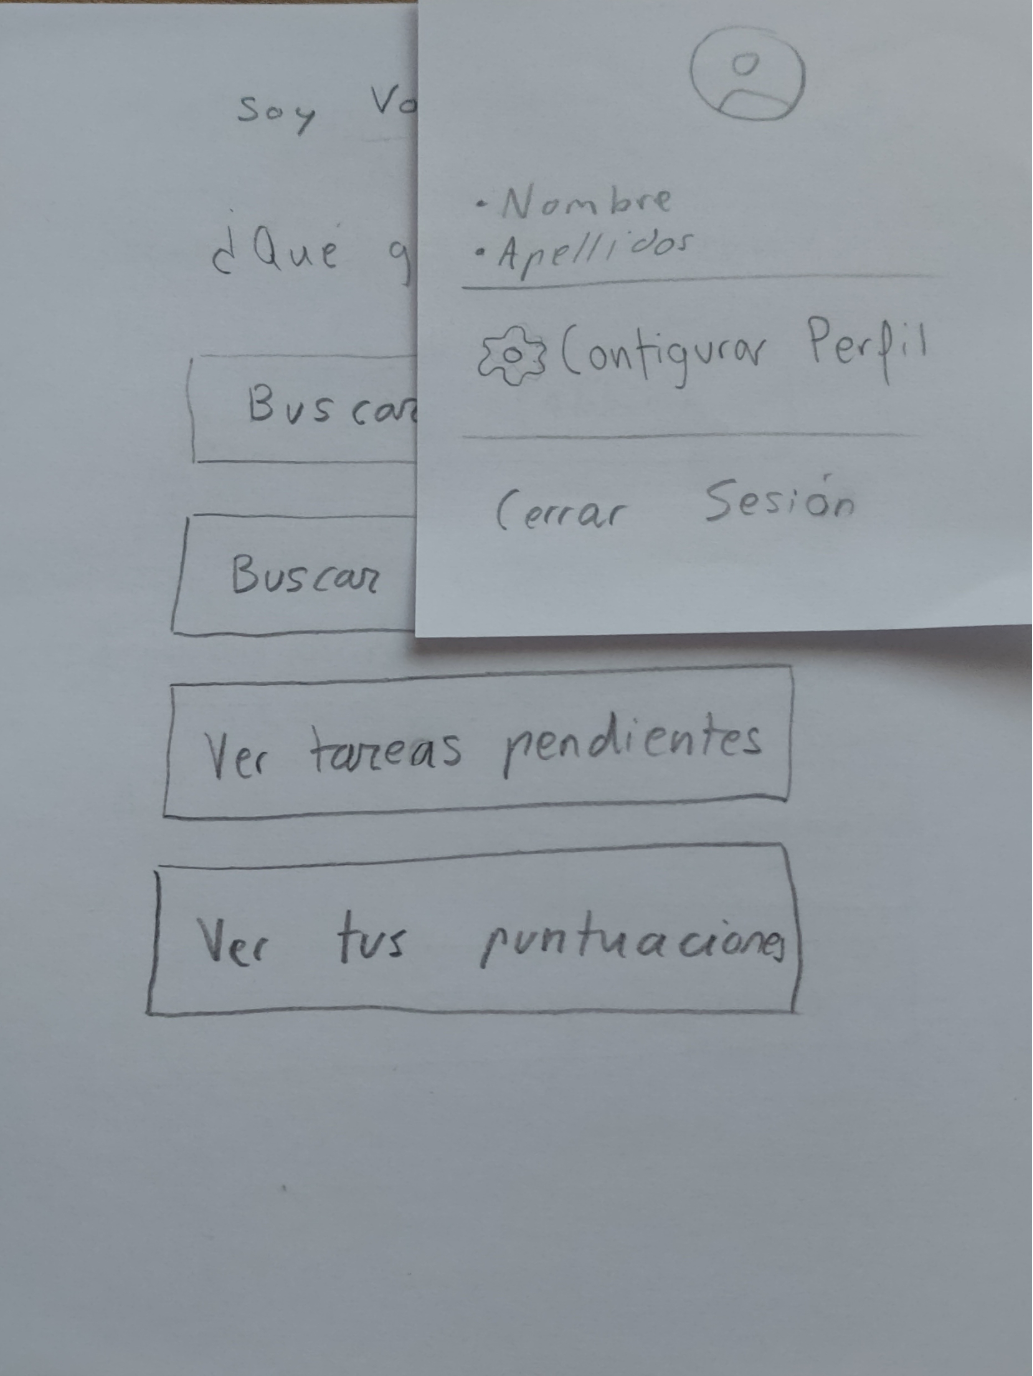 Soy Vo
¿Qué q
Buscar
Buscar
Ver tareas pendientes
Ver tus puntuaciones
• Nombre
• Apellidos
Configurar Perfil
Cerrar Sesión